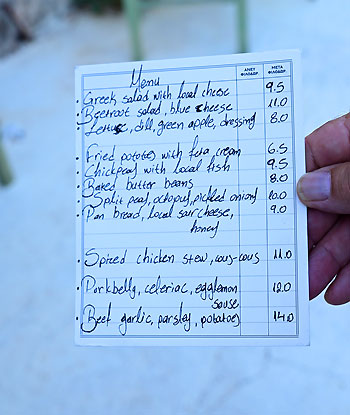 ΑΝΕΥ ΦΙΛΟΔΩΡ. ΜΕΤΑ ΦΙΛΟΔΩΡ.
Menu
· Greek salad with local cheese 9.5
· Beetroot salad, blue cheese 11.0
· Lettuce, dill, green apple, dressing 8.0
· Fried potatoes with feta, cream 6.5
· Chickpeas with local fish 9.5
· Baked butter beans 8.0
· Split peas, octopus, pickled onions 10.0
· Pan bread, local sour cheese, 9.0
honey
· Spiced chicken stew, cous-cous 11.0
· Porkbelly, celeriac, egglemon 12.0
souse
· Beef garlic, parsley, potatoes 14.0